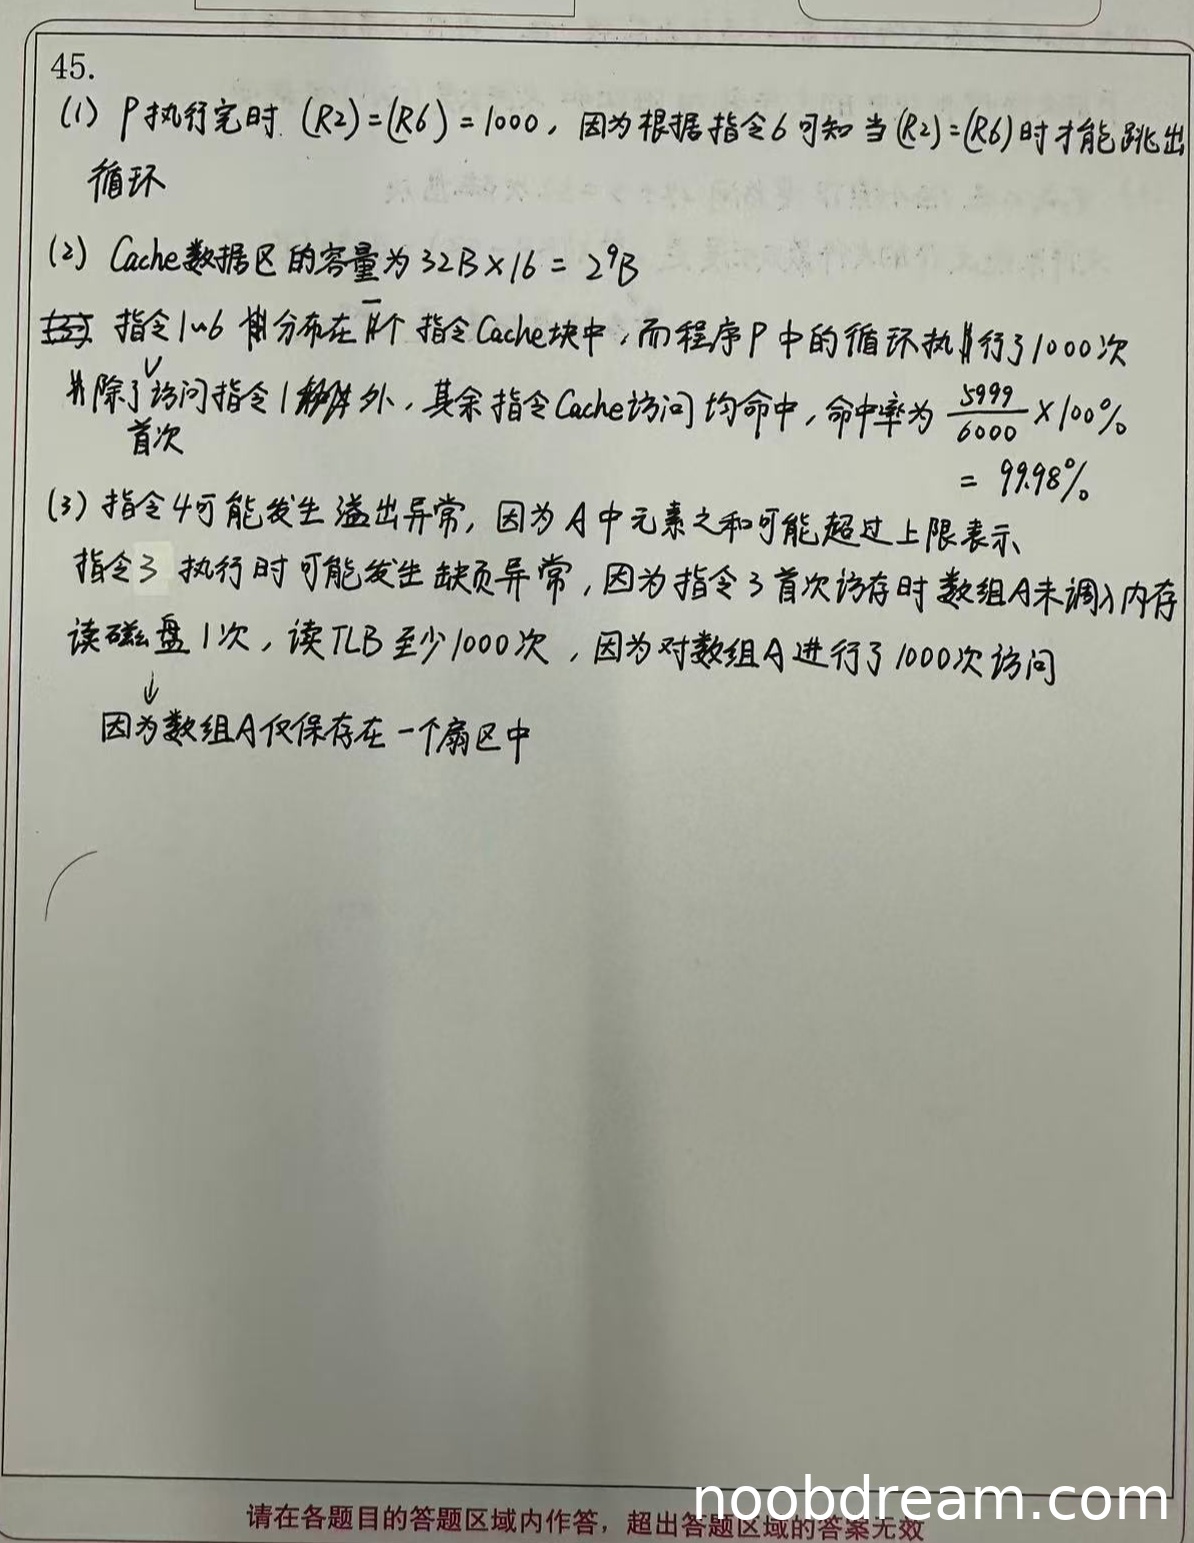 45.
(1) P执行完时 (R2)=(R6)=1000，因为根据指令6可知当(R2)=(R6)时才能跳出
循环
(2) Cache数据区的容量为32B×16=2⁹B
指令1~6 分布在一个指令Cache块中，而程序P中的循环执行了1000次
除了首次访问指令1外，其余指令Cache访问均命中，命中率为 5999/6000 ×100%
= 99.98%
(3) 指令4可能发生溢出异常，因为A中元素之和可能超过上限表示、
指令3 执行时可能发生缺页异常，因为指令3首次访存时数组A未调入内存
读磁盘1次，读TLB至少1000次，因为对数组A进行了1000次访问
↓
因为数组A仅保存在一个扇区中
请在各题目的答题区域内作答，超出答题区域的答案无效
noobdream.com